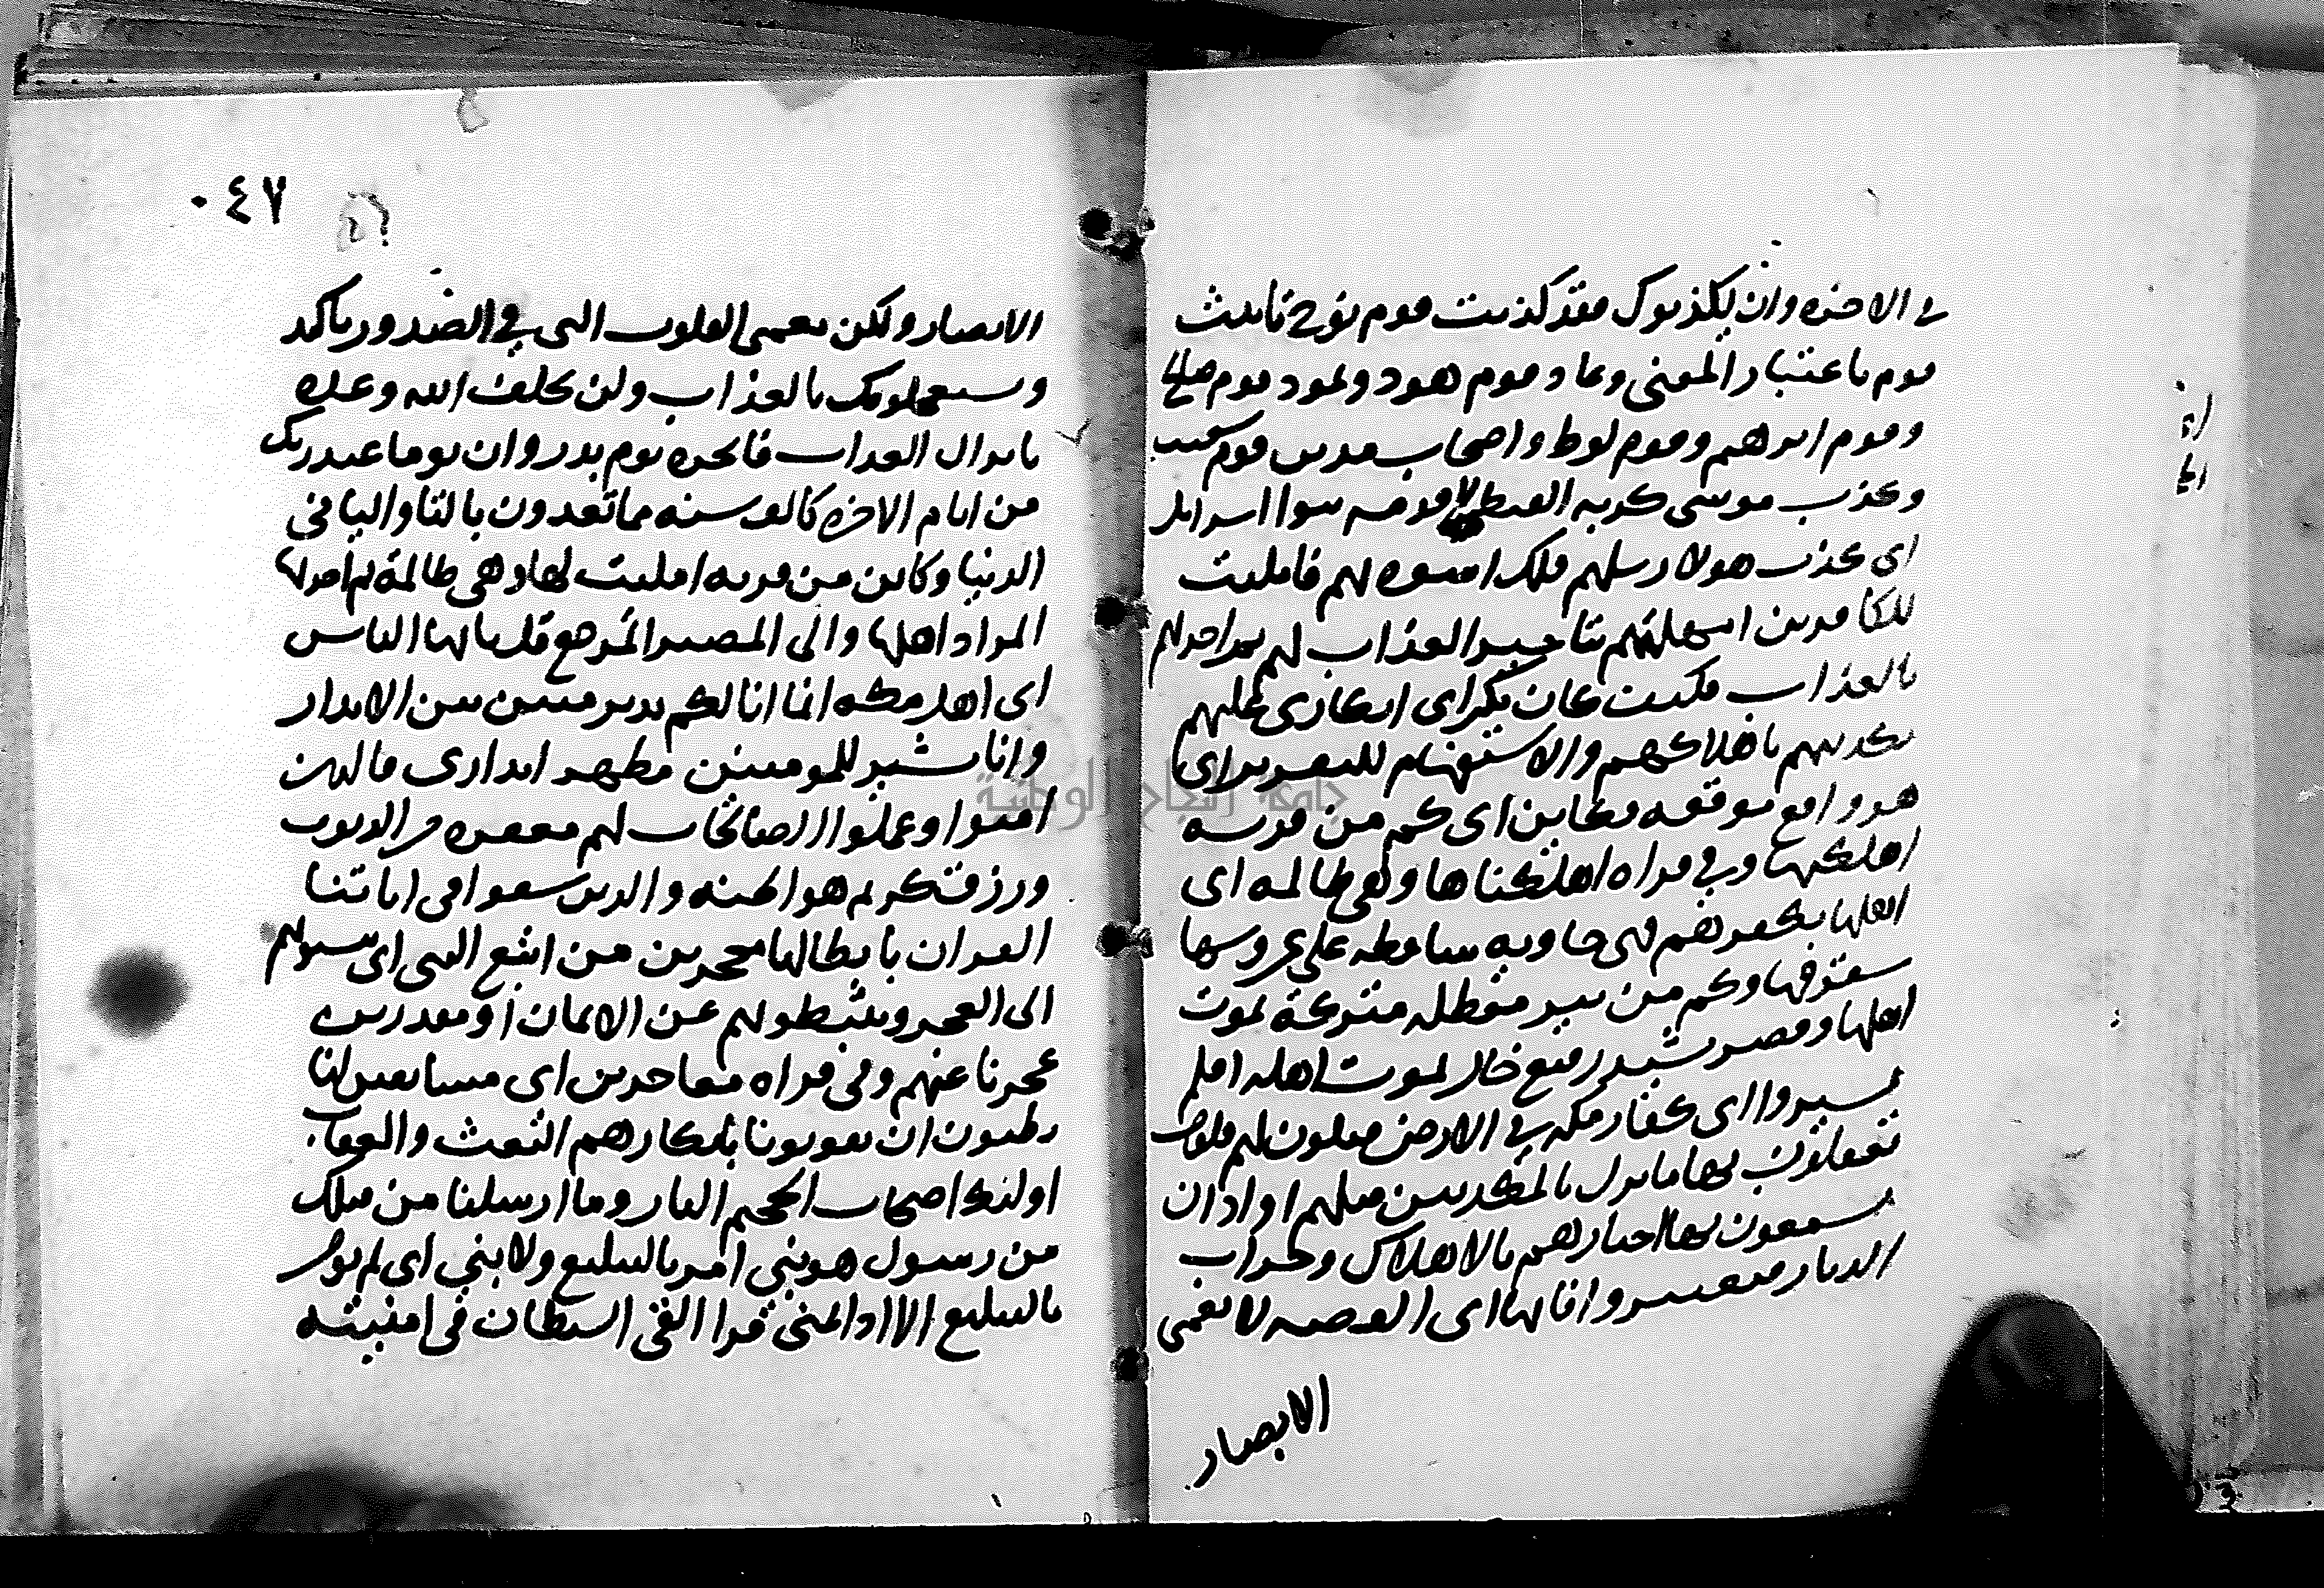 في الاخرة وان يكذبوك فقد كذبت قوم نوح تانيث
قوم باعتبار المعنى وعاد قوم هود وثمود قوم صالح
وقوم ابرهيم وقوم لوط واصحاب مدين قوم شعيب
وكذب موسى كذبه القبط لا قومه بنوا اسرايل
اى كذب هولا رسلهم فلك اسوة بهم فامليت
للكافرين امهلتهم بتاخير العذاب لهم ثم اخذتهم
بالعذاب فكيف كان نكير اى انكارى عليهم
بتكذيبهم باهلاكهم والاستفهام للتقرير اى
هو واقع موقعه فكاين اى كم من قرية
اهلكتها وفي قراة اهلكناها وهى ظالمة اى
اهلها بكفرهم فهى خاوية ساقطة على عروشها
سقوفها وكم من بير معطلة متروكة بموت
اهلها وقصر مشيد رفيع خال بموت اهله افلم
يسيروا اى كفار مكة في الارض فتكون لهم قلوب
يعقلون بها ما نزل بالمكذبين قبلهم او اذان
يسمعون بها اخبارهم بالاهلاك وخراب
الديار فيعتبروا فانها اى القصة لا تعمى
الابصار
٠٤٧
الابصار ولكن تعمى القلوب التى في الصدور تاكيد
ويستعجلونك بالعذاب ولن يخلف الله وعده
بانزال العذاب فانجزه يوم بدر وان يوما عند ربك
من ايام الاخرة كالف سنة مما تعدون بالتا واليا فى
الدنيا وكاين من قرية امليت لها وهى ظالمة ثم اخذتها
المراد اهلها والى المصير المرجع قل يايها الناس
اى اهل مكة انما انا لكم نذير مبين بين الانذار
وانا بشير للمومنين مطهر انذارى فالذين
امنوا وعملوا الصالحات لهم مغفرة من الذنوب
ورزق كريم هو الجنة والذين سعوا فى اياتنا
القران بابطالها معجزين من اتبع النبى اى ينسبونهم
الى العجز ويثبطونهم عن الايمان او مقدرين
عجزنا عنهم وفى قراة معاجزين اى مسابقين لنا
يظنون ان يفوتونا بانكارهم البعث والعقاب
اولئك اصحاب الجحيم النار وما ارسلنا من قبلك
من رسول هو نبي امر بالتبليغ ولا نبي اى لم يومر
بالتبليغ الا اذا تمنى قرا القى الشيطان فى امنيته